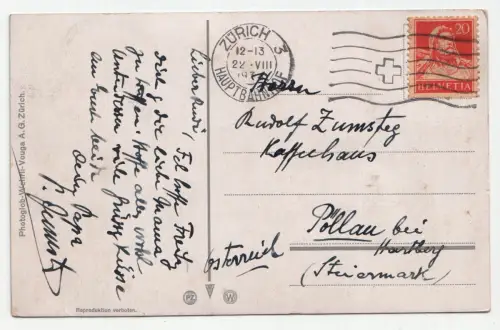 Photoglob-Wehrli-Vouga A.G. Zürich.
Lieber Rudi, Ich hoffe Freitag
Dich & die liebe Mama
zu treffen. Hoffe alles wohl
Unterdessen viele Küsse
an Euch beide
Dein Papa
ZÜRICH 3
12-13
22·VIII
HAUPTBAHNHOF
20
HELVETIA
Herrn
Rudolf Zumsteg
Kaffeehaus
Pöllau bei
Hartberg
(Steiermark)
Österreich
PZ
W
Reproduktion verboten.